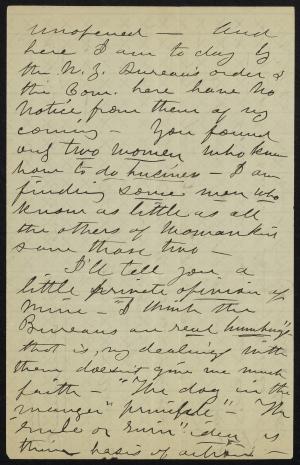 unopened - And
here I am to day by
the N.Z. Bureau's order &
the Com. here have no
notice from them of my
coming - You found
only two women who knew
how to do business - I am
finding some men who
know as little as all
the others of Womankind
save those two -
I'll tell you a
little private opinion of
mine - "I think the
Bureaus are real humbugs"
that is, my dealings with
them doesn't give me much
faith - "The dog in the
manger" principle" - "The
rule or ruin" idea is
their basis of action -